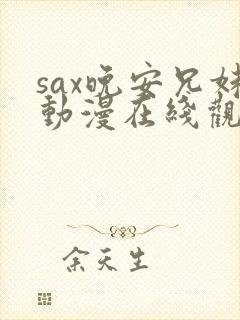 sax晚安兄妹
動漫在綫觀
余天生